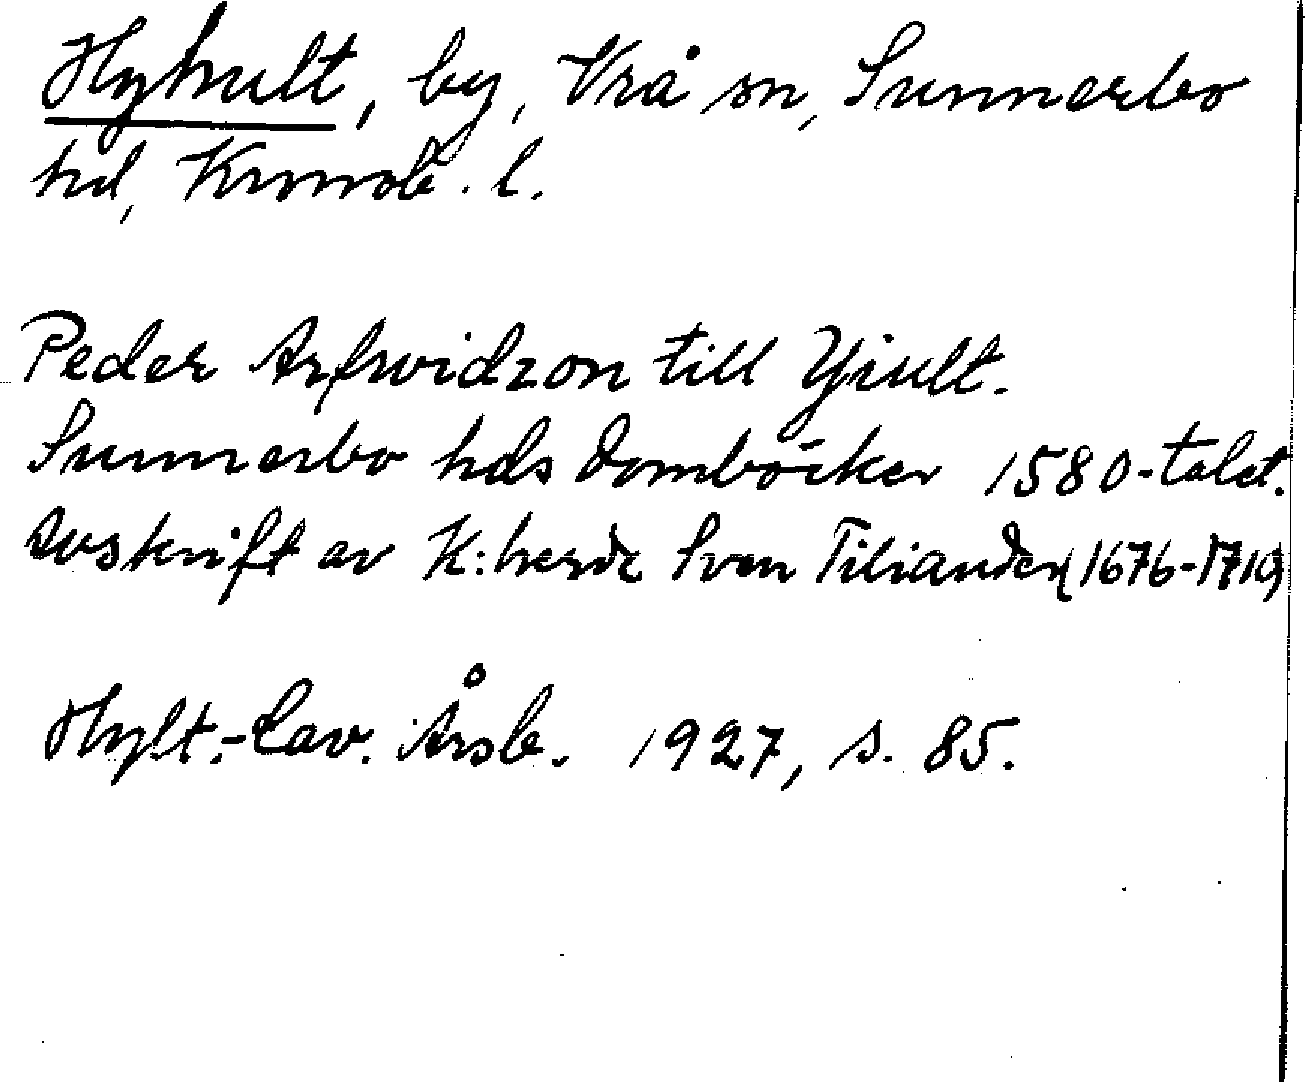 Hyhult, by, Vrå sn, Sunnerbo
hd, Kronob. l.
Peder Arfwidzon till Yjiult.
Sunnerbo hds domböcker 1580-talet.
Avskrift av K:herde Sven Tiliander (1676-1710)
Hylt.-Cav. Årsb. 1927, s. 85.